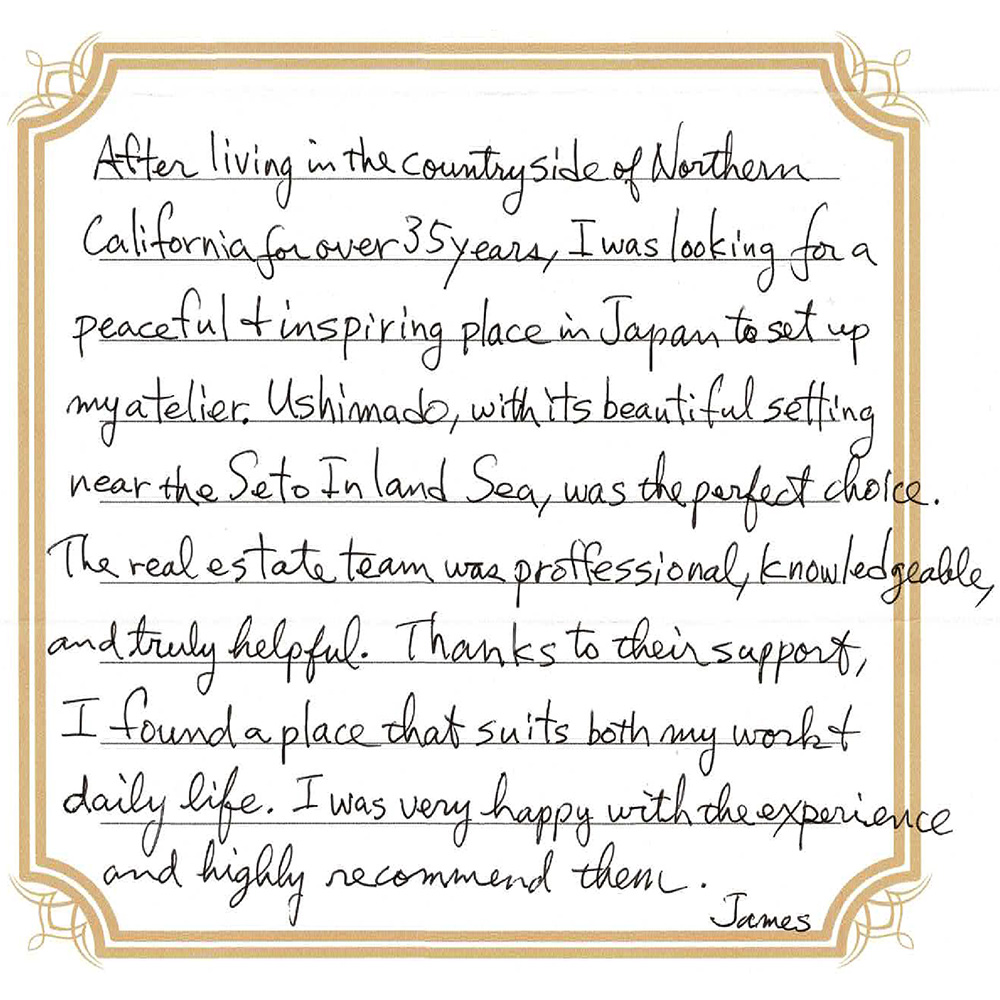 After living in the countryside of Northern
California for over 35 years, I was looking for a
peaceful & inspiring place in Japan to set up
my atelier. Ushimado, with its beautiful setting
near the Seto Inland Sea, was the perfect choice.
The real estate team was proffessional, knowledgeable,
and truly helpful. Thanks to their support,
I found a place that suits both my work &
daily life. I was very happy with the experience
and highly recommend them.
James